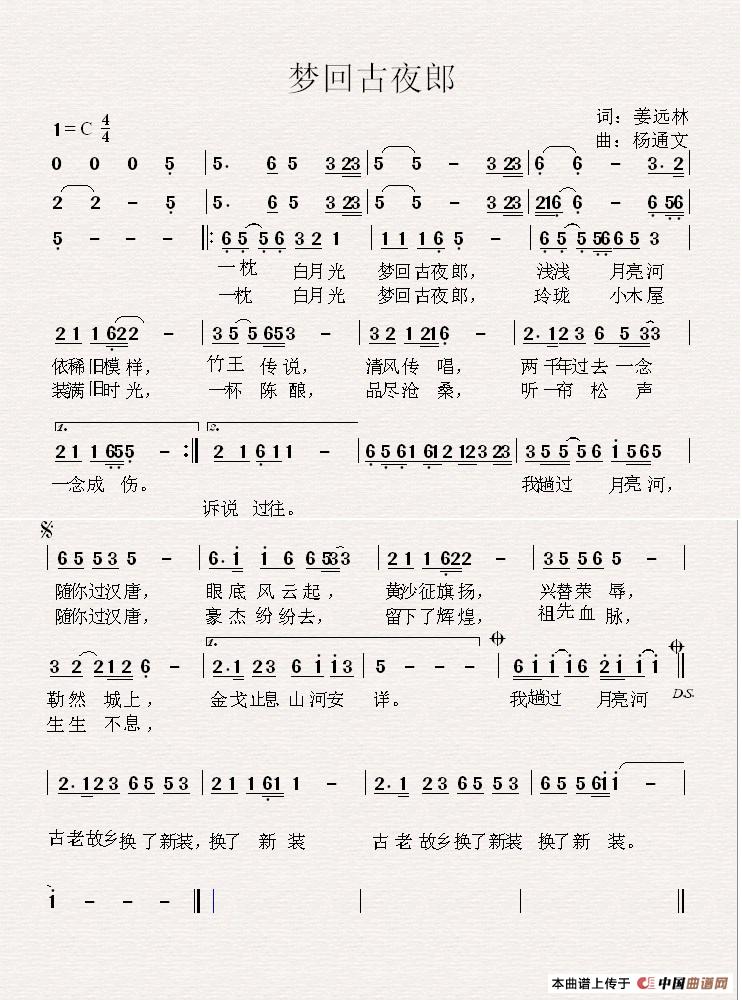 梦回古夜郎
1=C 4/4
词：姜远林
曲：杨通文
0 0 0 5 | 5. 6 5 3 23 | 5 5 - 3 23 | 6 6 - 3. 2 |
2 2 - 5 | 5. 6 5 3 23 | 5 5 - 3 23 | 216 6 - 6 56 |
5 - - - |: 6 5 5 6 3 2 1 | 1 1 1 6 5 - | 6 5 5 566 5 3 |
一枕 白月光 梦回古夜郎， 浅浅 月亮河
一枕 白月光 梦回古夜郎， 玲珑 小木屋
2 1 1 622 - | 3 5 5 653 - | 3 2 1 216 - | 2. 12 3 6 5 33 |
依稀旧模样， 竹王 传说， 清风传 唱， 两千年过去一念
装满旧时光， 一杯 陈酿， 品尽沧 桑， 听一帘 松 声
1. 2.
2 1 1 655 - :| 2 1 6 1 1 - | 6 5 61 61 2 12 3 23 | 3 5 5 5 6 1 5 6 5 |
一念成 伤。 我趟过 月亮河，
诉说 过往。
6 5 5 3 5 - | 6. 1 1 6 6 533 | 2 1 1 622 - | 3 5 5 6 5 - |
随你过汉唐， 眼底 风云起， 黄沙征旗扬， 兴替荣 辱，
随你过汉唐， 豪杰纷纷去， 留下了辉煌， 祖先血 脉，
1.
3 2 2 1 2 6 - | 2. 1 2 3 6 1 1 3 | 5 - - - | 6 1 1 1 6 2 1 1 1 ||
勒然 城上， 金戈止息 山河安 详。 我趟过 月亮河 D.S.
生生 不息，
2. 1 2 3 6 5 5 3 | 2 1 1 61 1 - | 2. 1 2 3 6 5 5 3 | 6 5 5 61 1 - |
古老故乡换了新装，换了 新 装 古老 故乡换了新装 换了新 装。
1 - - - ||
本曲谱上传于 中国曲谱网